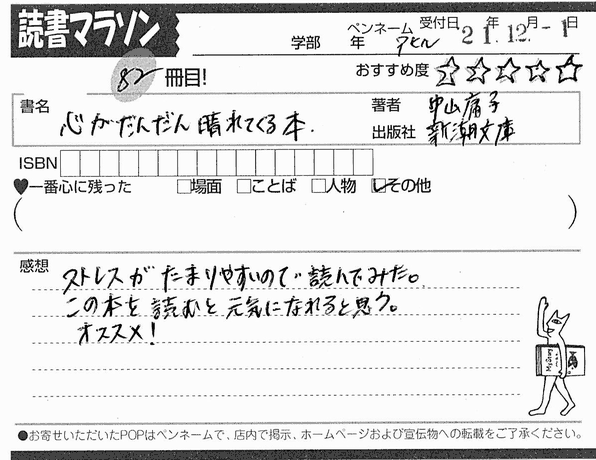 読書マラソン
学部 年 ペンネーム アヒル 受付日 21年12月-1日
82冊目! おすすめ度 ☆☆☆☆☆
書名 心がだんだん晴れてくる本. 著者 中山庸子
出版社 新潮文庫
ISBN
♥一番心に残った □場面 □ことば □人物 ☑その他
( )
感想 ストレスがたまりやすいので読んでみた。
この本を読むと元気になれると思う。
オススメ!
●お寄せいただいたPOPはペンネームで、店内で掲示、ホームページおよび宣伝物への転載をご了承ください。